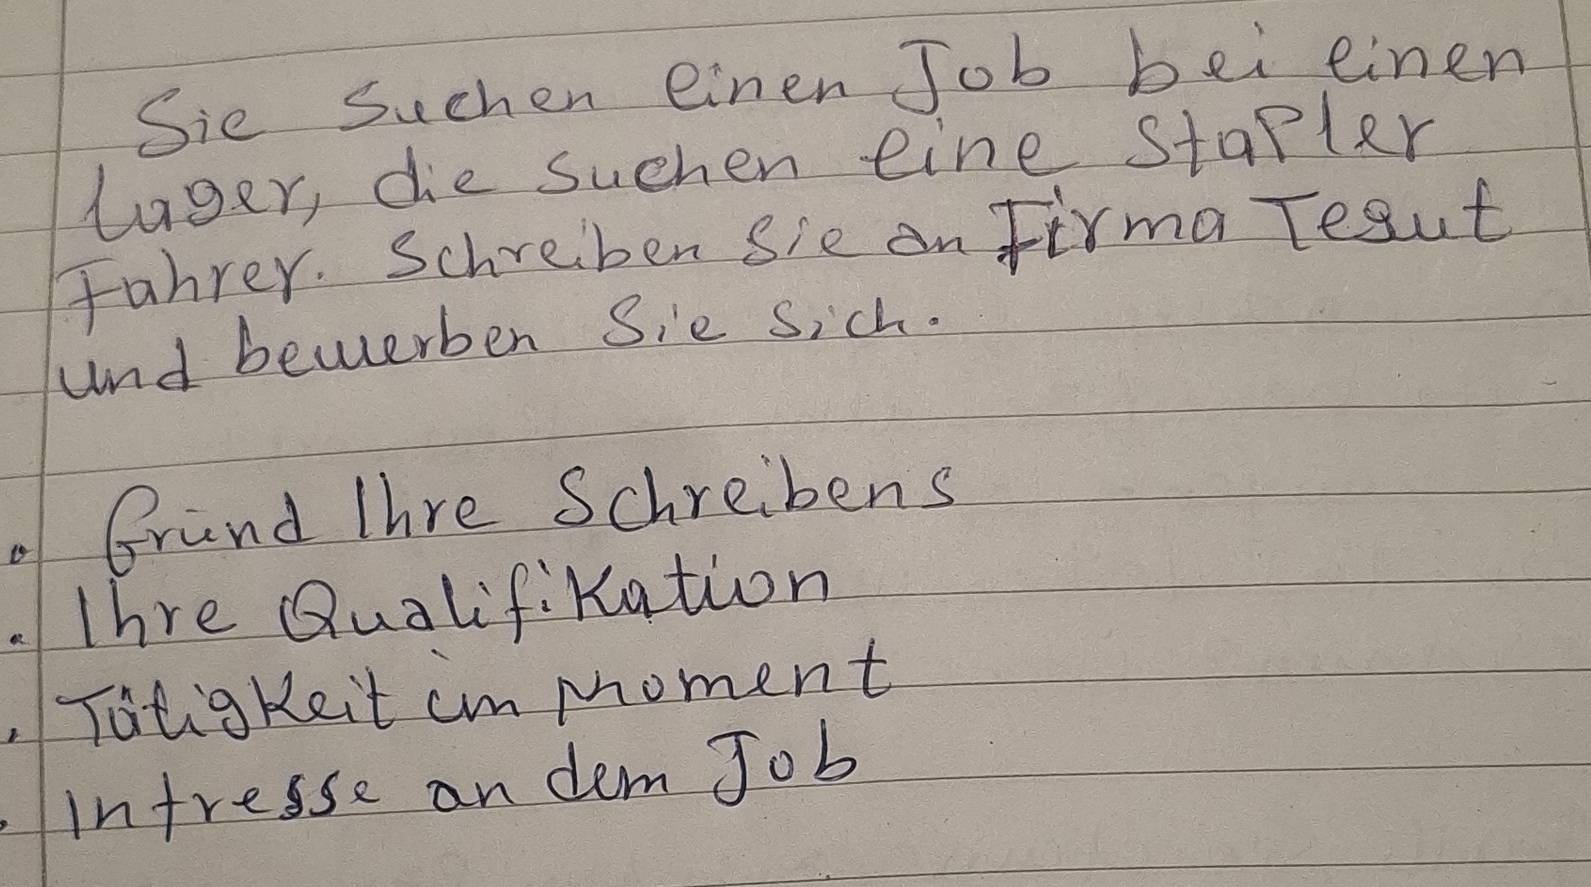 Sie suchen einen Job bei einen
Lager, die suchen eine Stapler
Fahrer. Schreiben Sie an Firma Tegut
und bewerben Sie sich.
• Gründ Ihre Schreibens
• Ihre Qualifikation
• Tätigkeit im Moment
• Intresse an dem Job